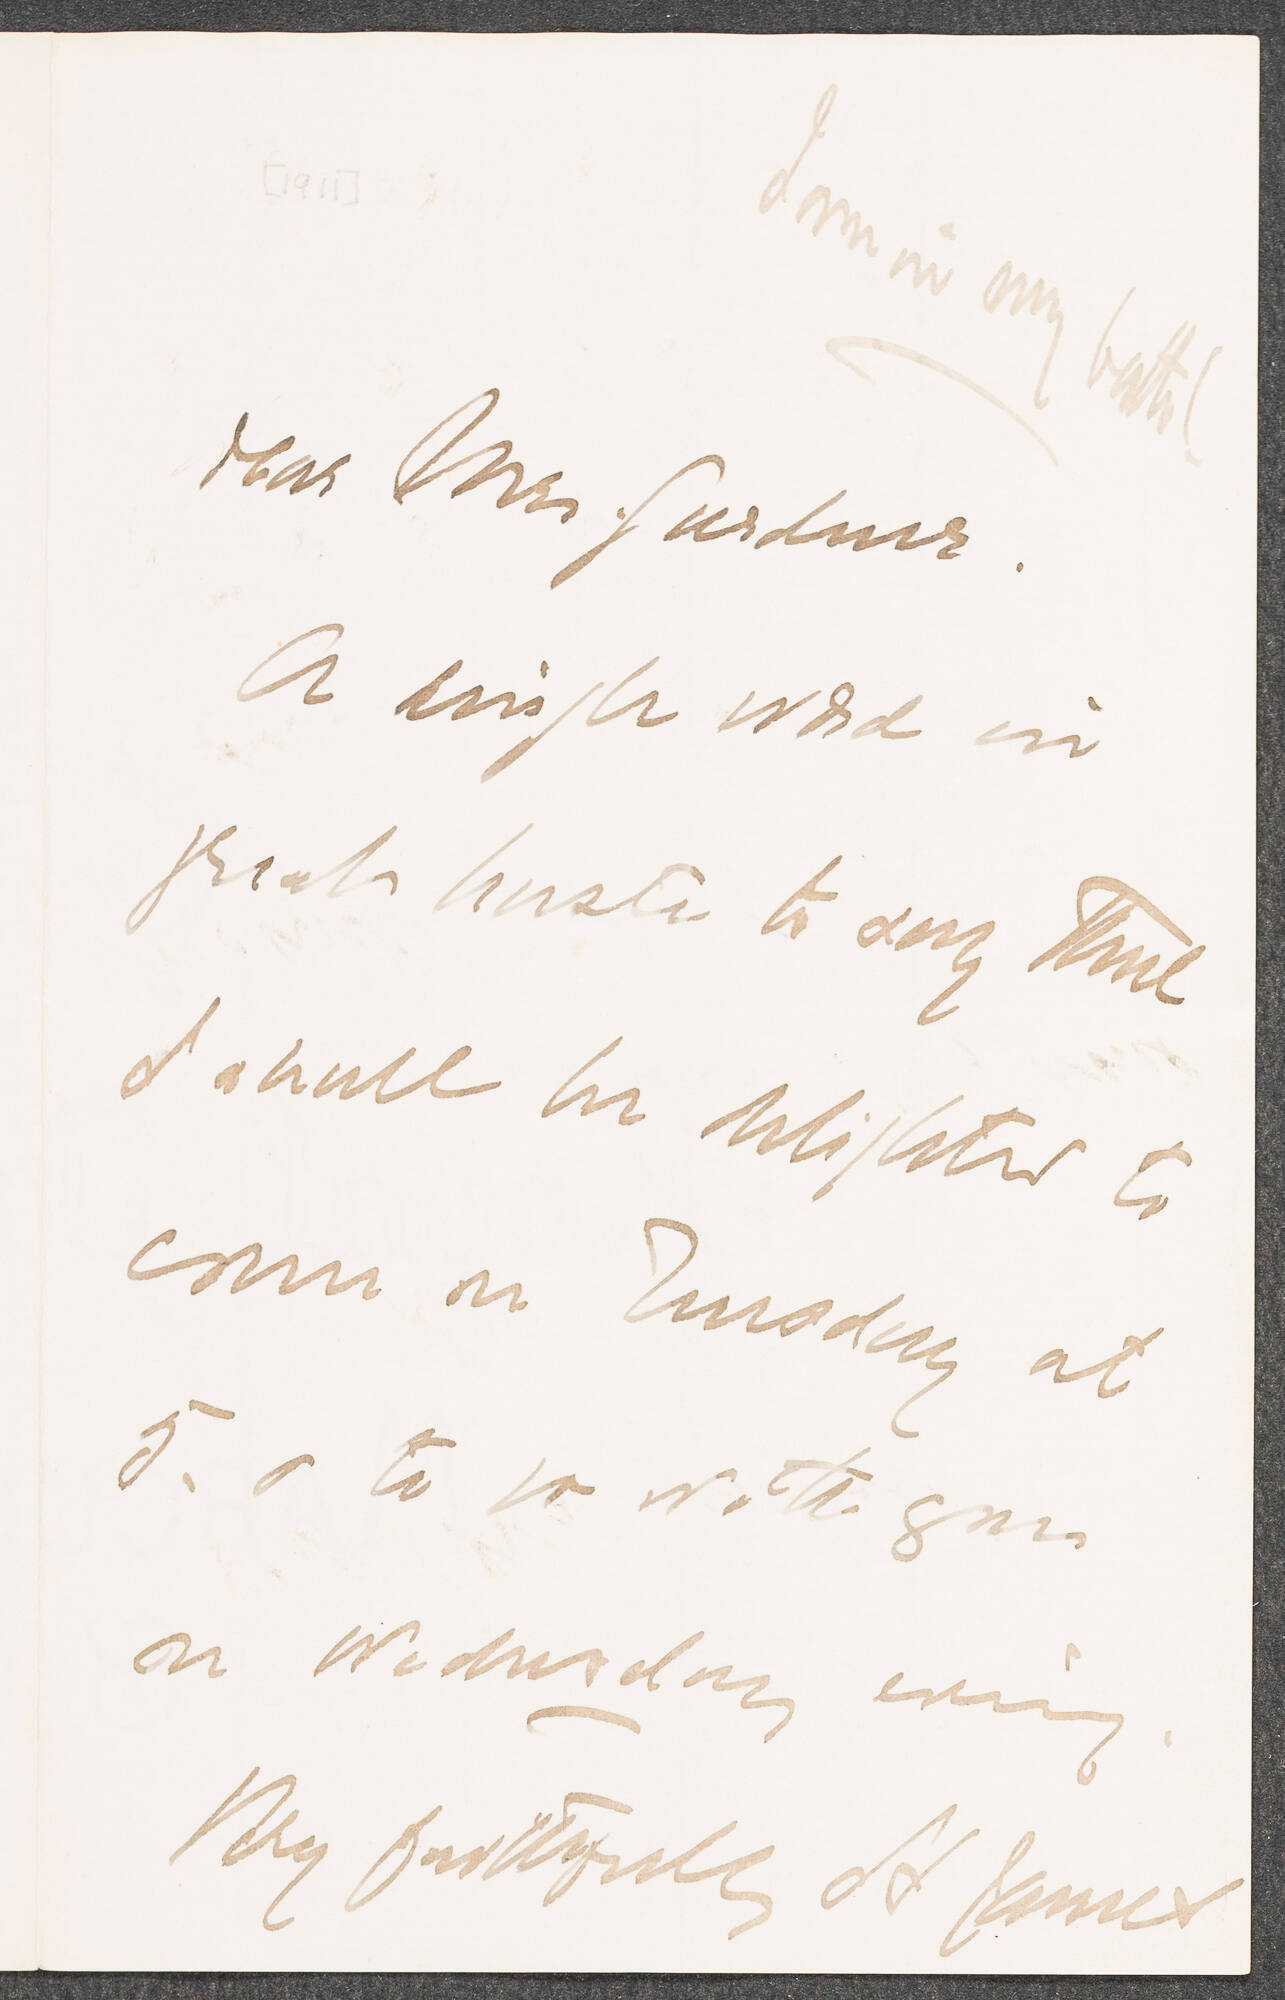 [1911]
I am in my bath!
Dear Mrs. Gardner.
A single word in
great haste to say that
I shall be delighted to
come on Tuesday at
5. & to go with you
on Wednesday evening.
Very faithfully H James